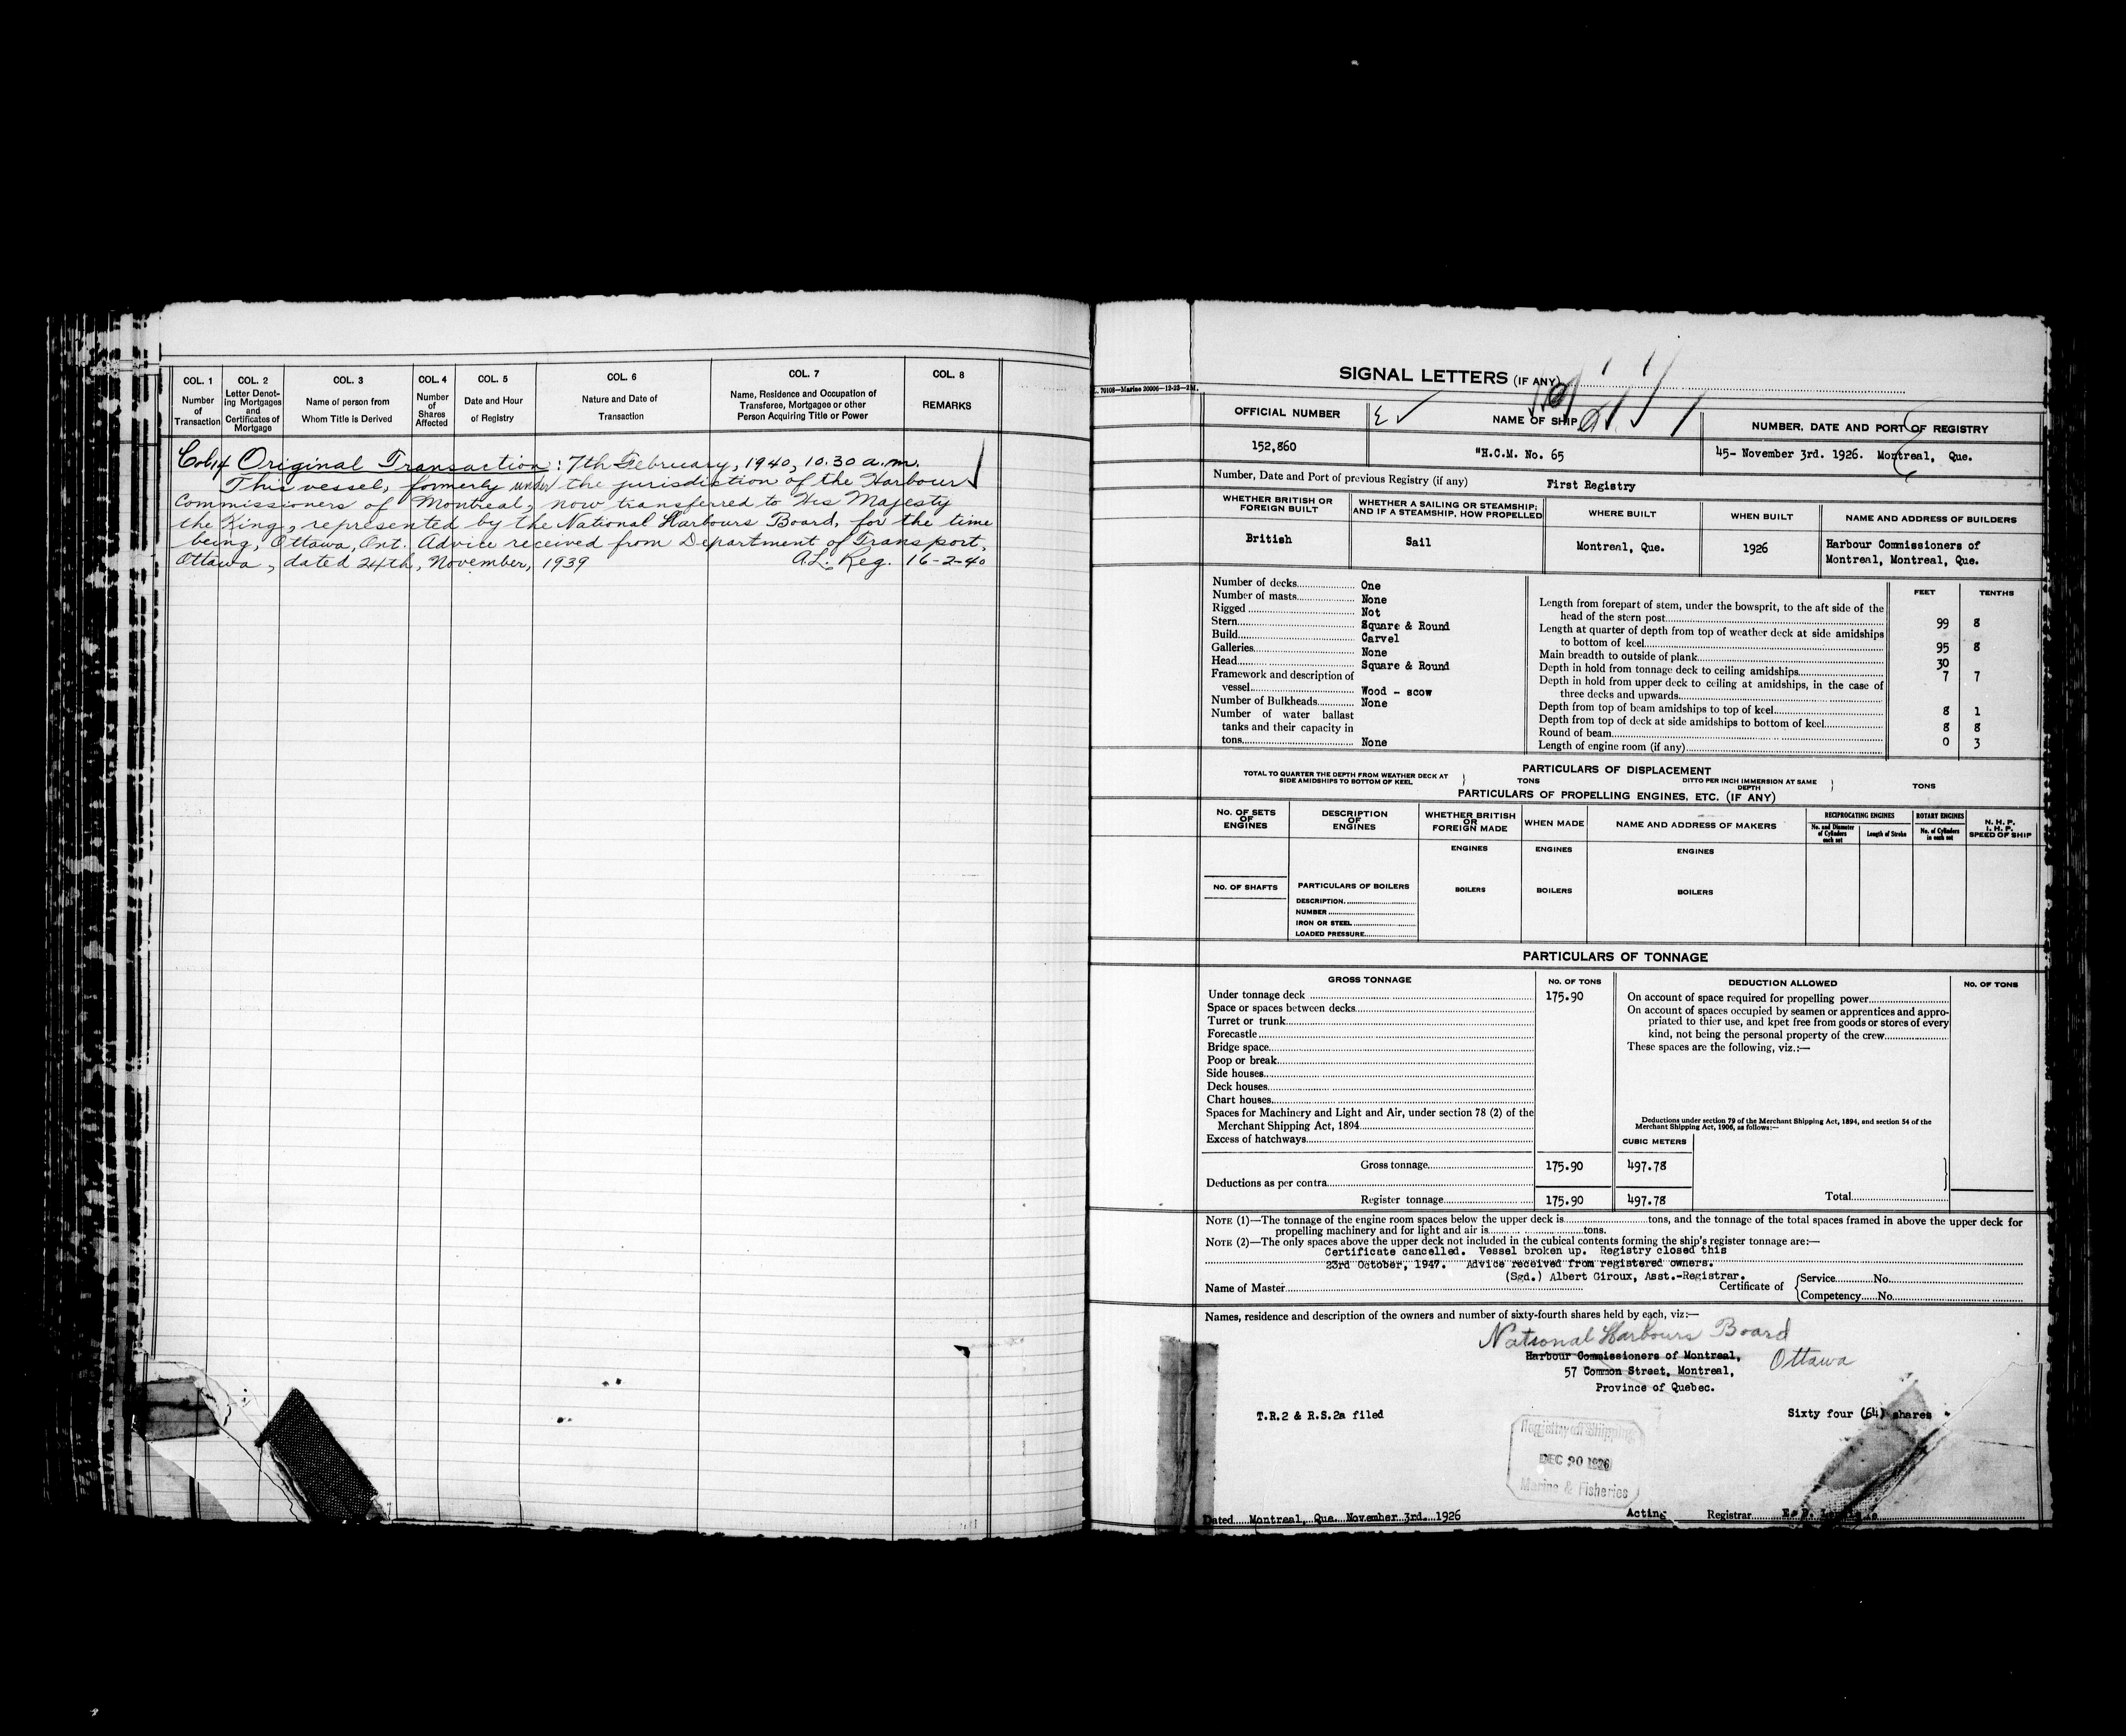 COL. 1 Number of Transaction
COL. 2 Letter Denoting Mortgages and Certificates of Mortgage
COL. 3 Name of person from Whom Title is Derived
COL. 4 Number of Shares Affected
COL. 5 Date and Hour of Registry
COL. 6 Nature and Date of Transaction
COL. 7 Name, Residence and Occupation of Transferee, Mortgagee or other Person Acquiring Title or Power
COL. 8 REMARKS
Original Transaction: 7th February, 1940, 10.30 a.m.
This vessel, formerly under the jurisdiction of the Harbour
Commissioners of Montreal, now transferred to His Majesty
the King, represented by the National Harbours Board, for the time
being, Ottawa, Ont. Advice received from Department of Transport,
Ottawa, dated 24th, November, 1939 A.L. Reg. 16-2-40
SIGNAL LETTERS (IF ANY)
OFFICIAL NUMBER
NAME OF SHIP
NUMBER, DATE AND PORT OF REGISTRY
152,860
"H.C.M. No. 65
45- November 3rd. 1926. Montreal, Que.
Number, Date and Port of previous Registry (if any) First Registry
WHETHER BRITISH OR FOREIGN BUILT
WHETHER A SAILING OR STEAMSHIP; AND IF A STEAMSHIP, HOW PROPELLED
WHERE BUILT
WHEN BUILT
NAME AND ADDRESS OF BUILDERS
British
Sail
Montreal, Que.
1926
Harbour Commissioners of
Montreal, Montreal, Que.
Number of decks One
Number of masts None
Rigged Not
Stern Square & Round
Build Carvel
Galleries None
Head Square & Round
Framework and description of
vessel Wood - scow
Number of Bulkheads None
Number of water ballast
tanks and their capacity in
tons None
FEET TENTHS
Length from forepart of stem, under the bowsprit, to the aft side of the
head of the stern post 99 8
Length at quarter of depth from top of weather deck at side amidships
to bottom of keel 95 8
Main breadth to outside of plank 30
Depth in hold from tonnage deck to ceiling amidships 7 7
Depth in hold from upper deck to ceiling at amidships, in the case of
three decks and upwards
Depth from top of beam amidships to top of keel 8 1
Depth from top of deck at side amidships to bottom of keel 8 8
Round of beam 0 3
Length of engine room (if any)
PARTICULARS OF DISPLACEMENT
TOTAL TO QUARTER THE DEPTH FROM WEATHER DECK AT SIDE AMIDSHIPS TO BOTTOM OF KEEL } TONS
DITTO PER INCH IMMERSION AT SAME DEPTH } TONS
PARTICULARS OF PROPELLING ENGINES, ETC. (IF ANY)
No. OF SETS OF ENGINES
DESCRIPTION OF ENGINES
WHETHER BRITISH OR FOREIGN MADE
WHEN MADE
NAME AND ADDRESS OF MAKERS
RECIPROCATING ENGINES
No. and Diameter of Cylinders each set
Length of Stroke
ROTARY ENGINES
No. of Cylinders in each set
N. H. P.
I. H. P.
SPEED OF SHIP
ENGINES ENGINES ENGINES
No. OF SHAFTS
PARTICULARS OF BOILERS
BOILERS BOILERS BOILERS
DESCRIPTION
NUMBER
IRON OR STEEL
LOADED PRESSURE
PARTICULARS OF TONNAGE
GROSS TONNAGE
No. OF TONS
DEDUCTION ALLOWED
No. OF TONS
Under tonnage deck 175.90
Space or spaces between decks
Turret or trunk
Forecastle
Bridge space
Poop or break
Side houses
Deck houses
Chart houses
Spaces for Machinery and Light and Air, under section 78 (2) of the
Merchant Shipping Act, 1894
Excess of hatchways
On account of space required for propelling power
On account of spaces occupied by seamen or apprentices and appro-
priated to thier use, and kpet free from goods or stores of every
kind, not being the personal property of the crew
These spaces are the following, viz.:—
Deductions under section 79 of the Merchant Shipping Act, 1894, and section 54 of the
Merchant Shipping Act, 1906, as follows:—
CUBIC METERS
Gross tonnage 175.90 497.78
Deductions as per contra
Register tonnage 175.90 497.78
Total
NOTE (1)—The tonnage of the engine room spaces below the upper deck is tons, and the tonnage of the total spaces framed in above the upper deck for
propelling machinery and for light and air is tons.
NOTE (2)—The only spaces above the upper deck not included in the cubical contents forming the ship's register tonnage are:—
Certificate cancelled. Vessel broken up. Registry closed this
23rd October, 1947. Advice received from registered owners.
(Sgd.) Albert Giroux, Asst.-Registrar.
Name of Master
Certificate of { Service No.
Competency No.
Names, residence and description of the owners and number of sixty-fourth shares held by each, viz:—
National Harbours Board
Harbour Commissioners of Montreal, Ottawa
57 Common Street, Montreal,
Province of Quebec.
T.R.2 & R.S.2a filed
Sixty four (64) shares
Registry of Shipping
DEC 20 1926
Marine & Fisheries
Dated Montreal, Que. November 3rd. 1926 Acting Registrar